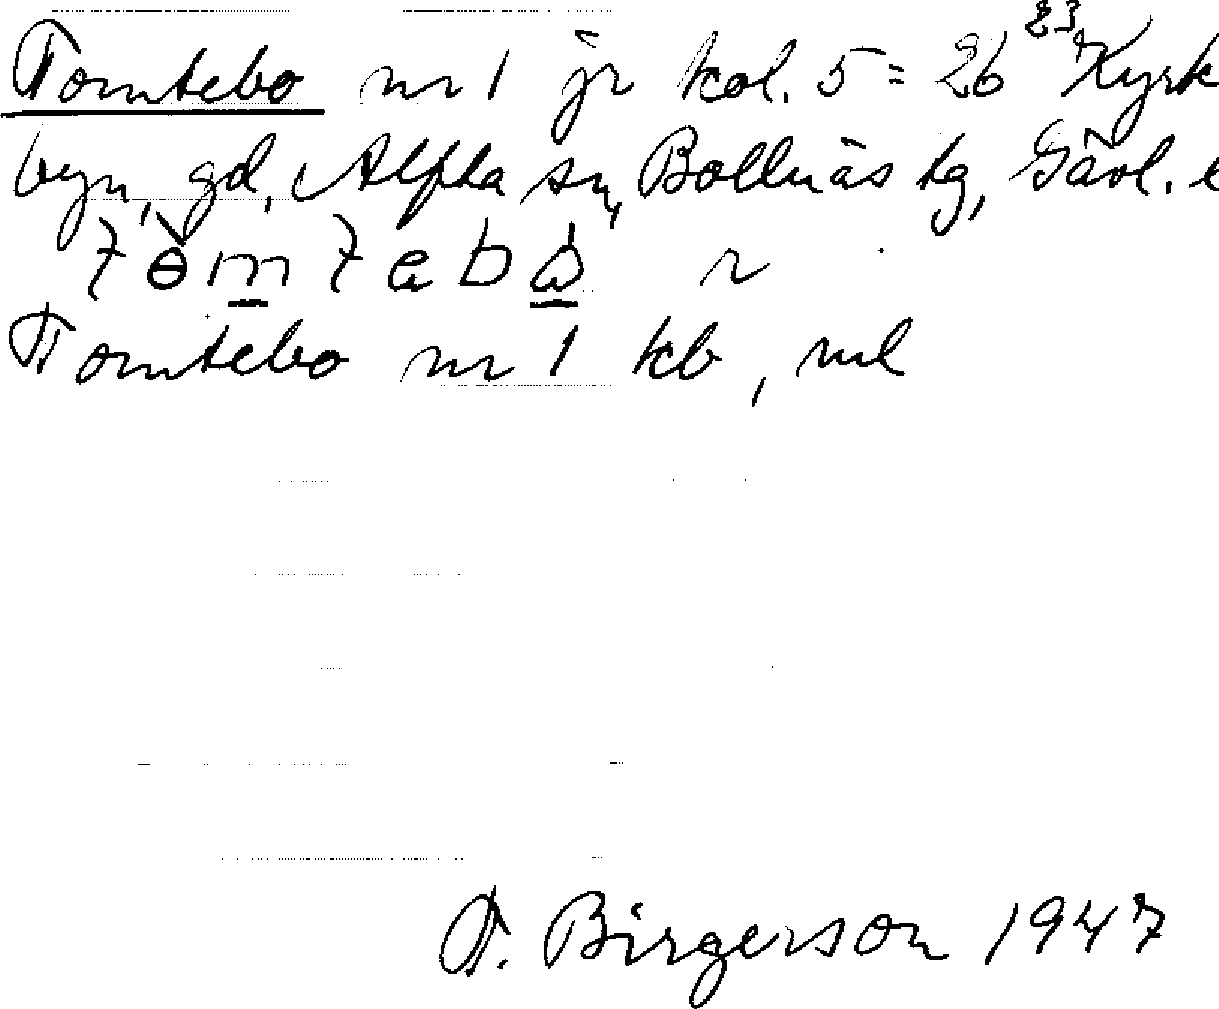 Tomtebo nr 1 jr kol. 5 = 26²³ Kyrk
byn, gd, Alfta sn, Bollnäs tg, Gävl. l
Tomtebo nr 1 kb, ml
T. Birgerson 1947